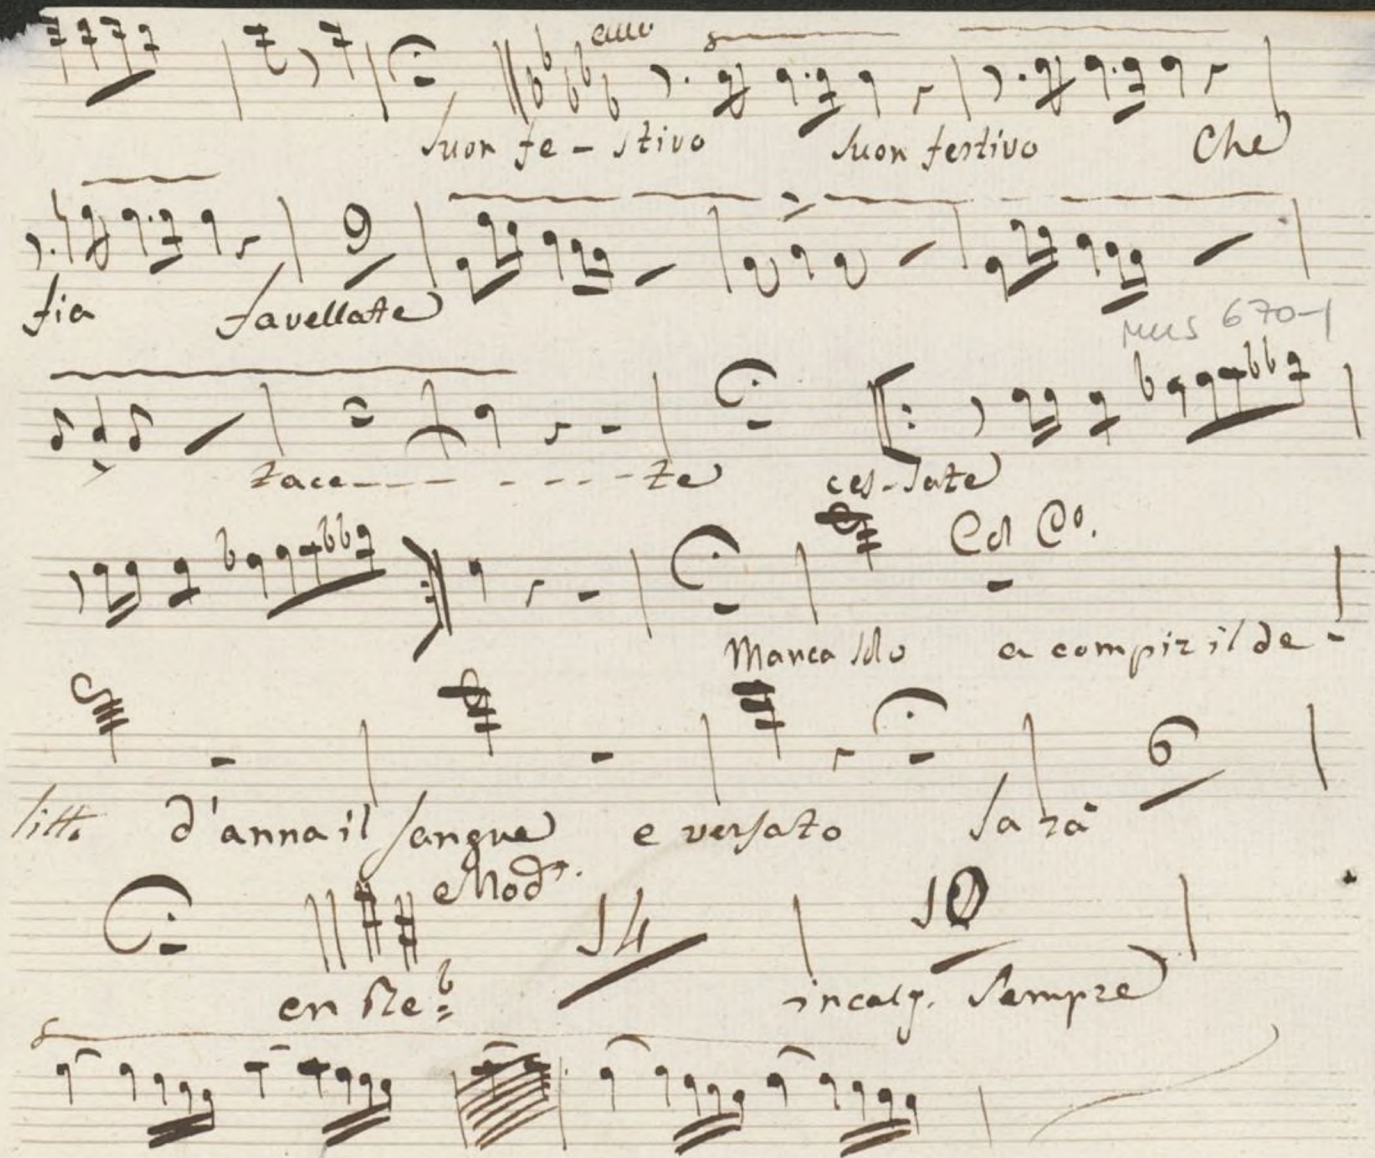 Suon fe - stivo Suon festivo Che
fia favellatte
mus 670-1
tace - - - - - - - te ces - sate
Col Co.
Manca solo a compir il de -
litto d'anna il sangue e versato sarà
6
Mod.to
14 10
en Re b incalz. Sempre